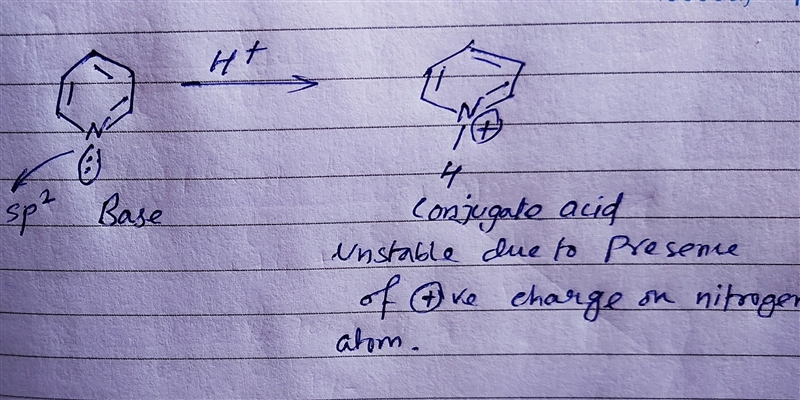 H+
N
N
+
H
sp²
Base
Conjugate acid
Unstable due to Presence
of ⊕ve charge on nitrogen
atom.